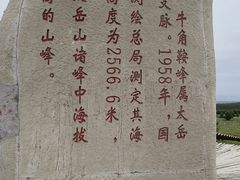 牛角鞍峰属太岳
文脉。1958年,国
测绘总局测定其海
高度为2566.6米,
岳山诸峰中海拔
高的山峰。